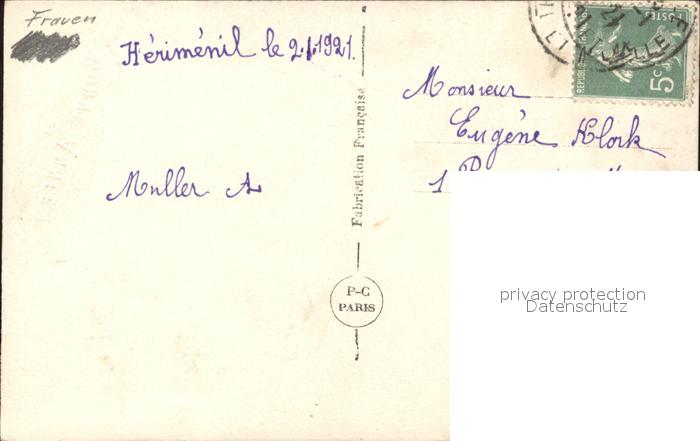 Frauen
Hériménil le 2.1.1921.
Muller A
Fabrication Française
P-C
PARIS
Monsieur
Eugène Klock
1
POSTES
5c
ET
privacy protection
Datenschutz